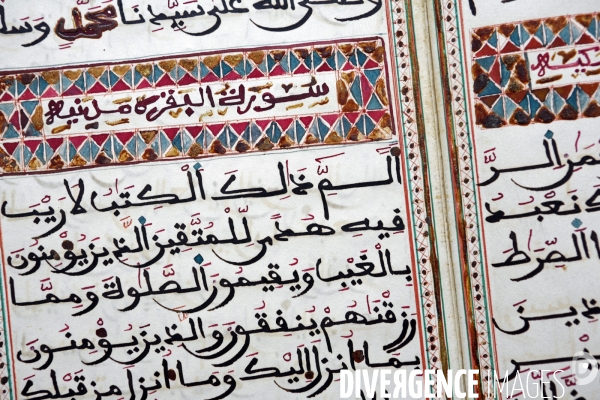 صلى الله على سيدنا محمد وسلم
سورة البقرة مدنية
الم ذلك الكتب لا ريب
فيه هدى للمتقين الذين يؤمنون
بالغيب ويقيمون الصلوة ومما
رزقنهم ينفقون والذين يؤمنون
بما أنزل إليك وما أنزل من قبلك
الر
نعبد
الصرط
DIVERGENCE IMAGES